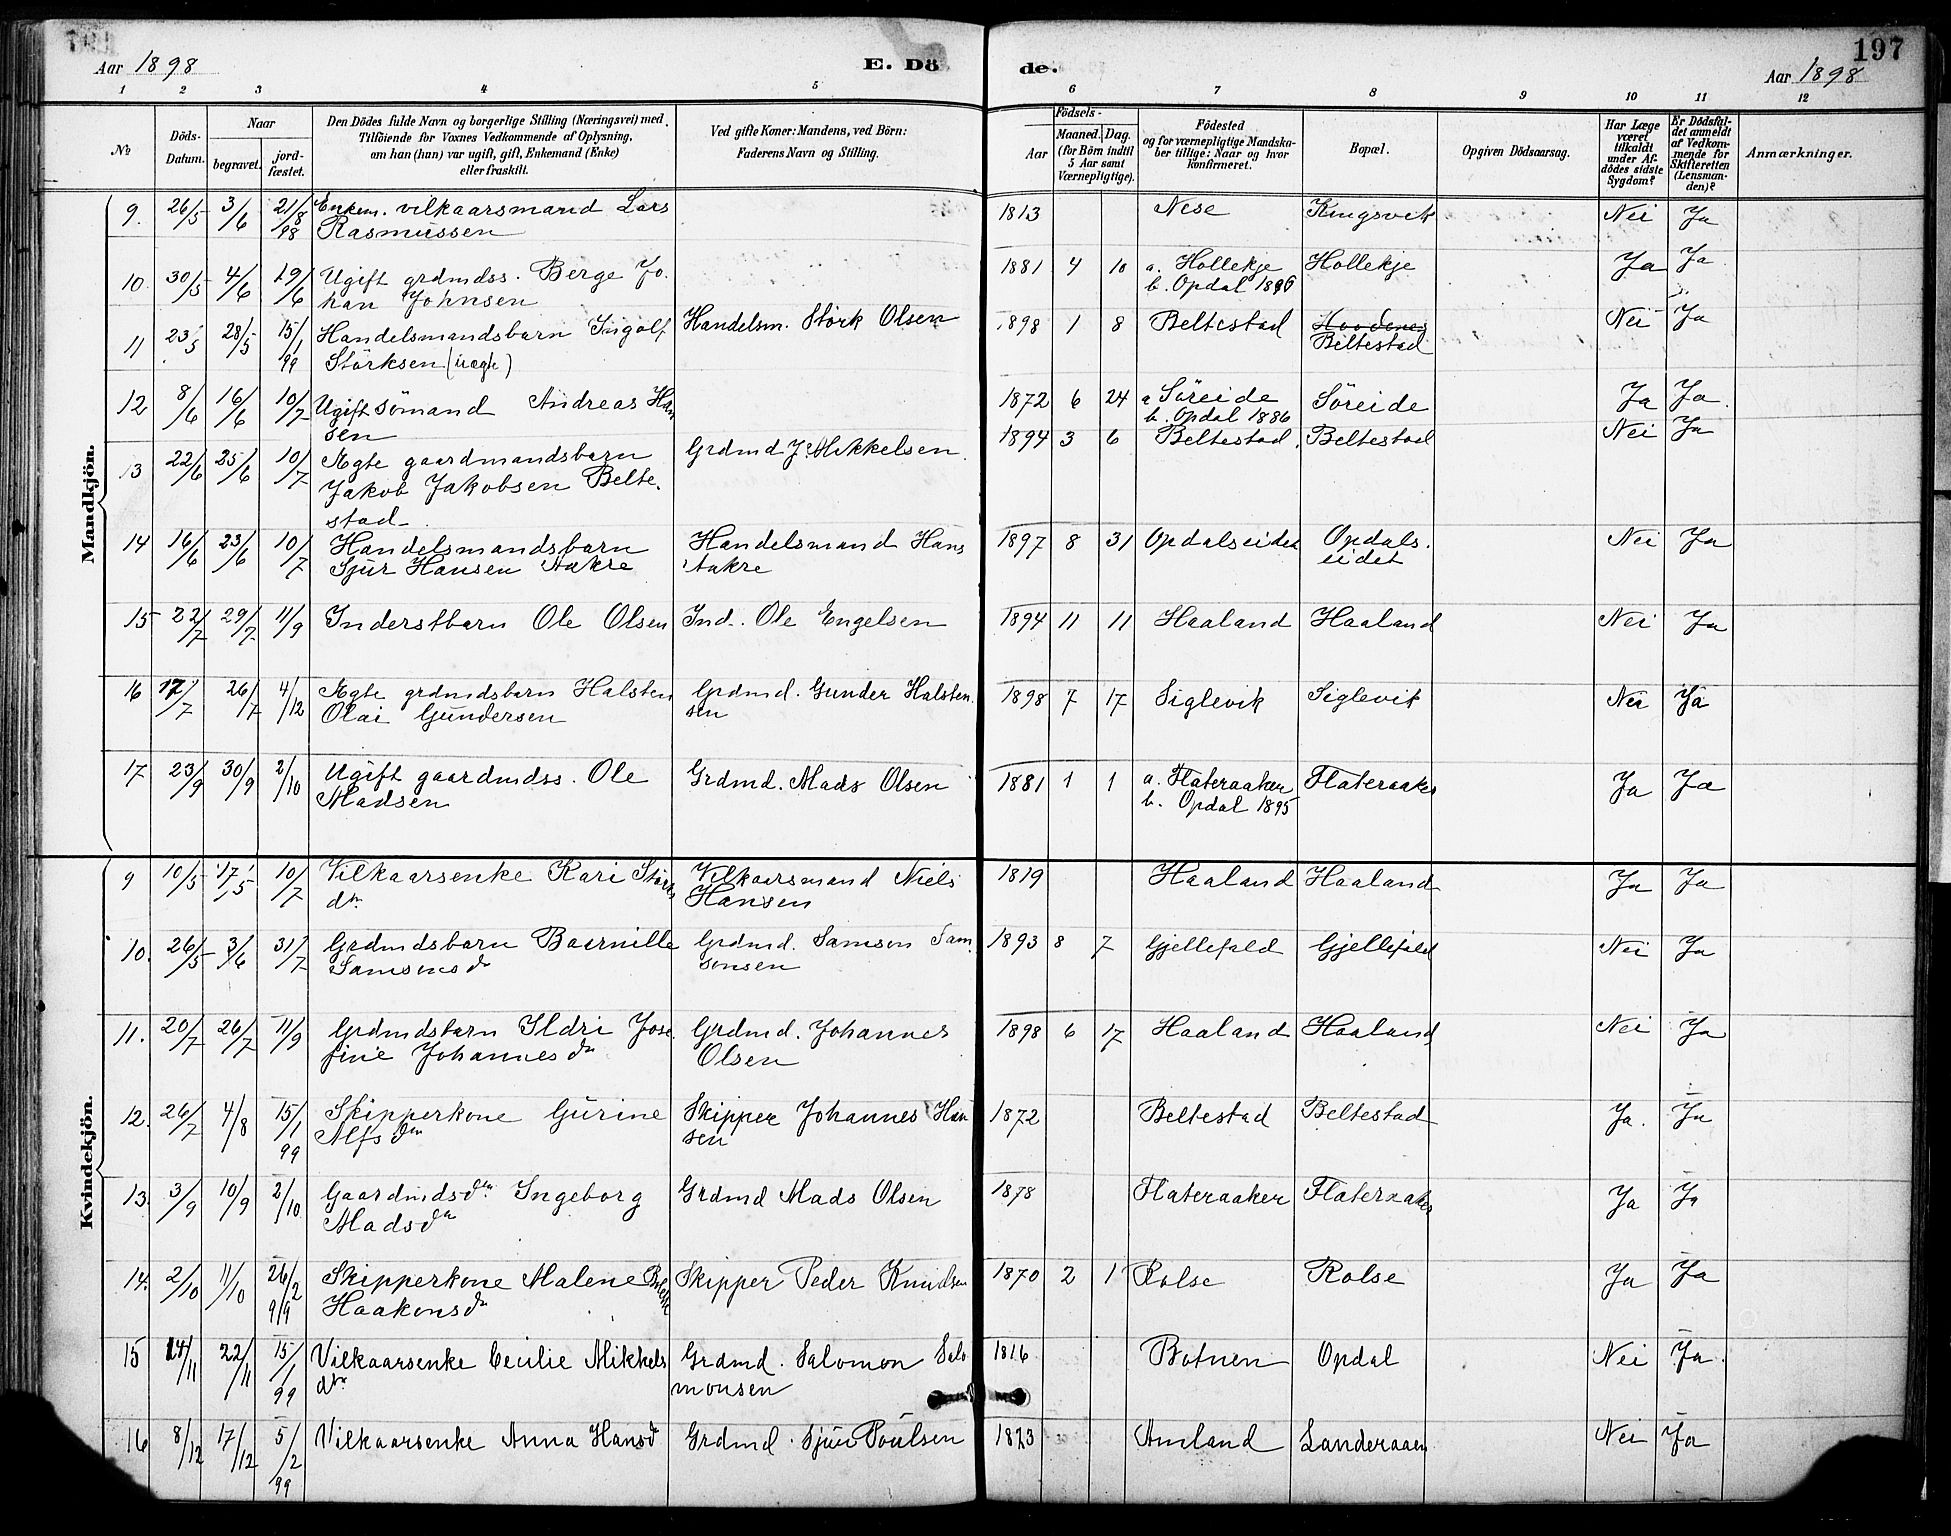 197
Aar 1898
E. Dö
de.
Aar 1898
1 2 3 4 5 6 7 8 9 10 11 12
№
Döds-Datum.
Naar
begravet.
jord-fæstet.
Den Dödes fulde Navn og borgerlige Stilling (Næringsvei) med
Tilföiende for Voxnes Vedkommende af Oplysning,
om han (hun) var ugift, gift, Enkemand (Enke)
eller fraskilt.
Ved gifte Koner: Mandens, ved Börn:
Faderens Navn og Stilling.
Födsels-
Aar
Maaned. Dag.
(for Börn indtil
5 Aar samt
Værnepligtige).
Födested
og for værnepligtige Mandska-
ber tillige: Naar og hvor
konfirmeret.
Bopæl.
Opgiven Dödsaarsag.
Har Læge
været
tilkaldt
under Af-
dödes sidste
Sygdom?
Er Dödsfal-
det anmeldt
af Vedkom-
mende for
Skifteretten
(Lensman-
den)?
Anmærkninger.
Mandkjön.
9. 26/5 3/6 21/8 98 Enkem. vilkaarsmand Lars
Rasmussen
1813 Nese Kingsvik Nei Ja
10. 30/5 4/6 19/6 Ugift grdmdss. Berge Jo-
han Johnsen
1881 4 10 a. Hollekje Hollekje Ja Ja
b. Opdal 1896
11 23/5 28/5 15/1 99 Handelsmandsbarn Ingolf
Störksen (uægte)
Handelsm. Störk Olsen
1898 1 8 Beltestad Beltestad Nei Ja
12 8/6 16/6 10/7 Ugift sömand Andreas Han
sen
1872 6 24 a Söreide Söreide Ja Ja
b. Opdal 1886
13 22/6 25/6 10/7 Ægte gaardmandsbarn
Jakob Jakobsen Belte-
stad
Grdmd J. Mikkelsen
1894 3 6 Beltestad Beltestad Nei Ja
14 16/6 23/6 10/7 Handelsmandsbarn
Sjur Hansen Aakre
Handelsmand Hans
Aakre
1897 8 31 Opdalseidet Opdals-
eidet Nei Ja
15 22/7 29/7 11/9 Inderstbarn Ole Olsen Ind. Ole Engelsen
1894 11 11 Haaland Haaland Nei Ja
16 17/7 26/7 4/12 Ægte grdmdsbarn Halsten
Olai Gundersen
Grdmd. Gunder Halsten
sen
1898 7 17 Siglevik Siglevik Nei Ja
17 23/9 30/9 2/10 Ugift gaardmdss. Ole
Madsen
Grdmd. Mads Olsen
1881 1 1 a. Flateraaker Flateraaker Ja Ja
b. Opdal 1895
Kvindekjön.
9 10/5 17/5 10/7 Vilkaarsenke Kari Störks
dtr
Vilkaarsmand Niels
Hansen
1819 Haaland Haaland Ja Ja
10. 26/5 3/6 31/7 Grdmdsbarn Baernille
Samsonsdr
Grdmd. Samson Sam
sonsen
1893 8 7 Gjellefald Gjellefald Nei Ja
11. 20/7 26/7 11/9 Grdmdsbarn Ildri Jose
fine Johannesdr
Grdmd. Johannes
Olsen
1898 6 17 Haaland Haaland Nei Ja
12. 26/7 4/8 15/1 99 Skipperkone Gurine
Alfsdtr
Skipper Johannes Han
sen
1872 Beltestad Beltestad Ja. Ja
13. 3/9 10/9 2/10 Gaardmdsdtr Ingeborg
Madsdtr
Grdmd Mads Olsen
1878 Flateraaker Flateraaker Ja Ja
14. 2/10 11/10 26/2 99 Skipperkone Malene
Haakonsdr
Skipper Peder Knudsen
1870 2 1 Rolse Rolse Ja Ja
15 14/11 22/11 15/1 99 Vilkaarsenke Cecilie Mikkels
dtr
Grdmd. Salomon Salo
monsen
1816 Botnen Opdal Nei Ja.
16 8/12 17/12 5/2 99 Vilkaarsenke Anna Hansd Grdmd. Sjur Poulsen
1823 Amland Landeraaen Nei Ja